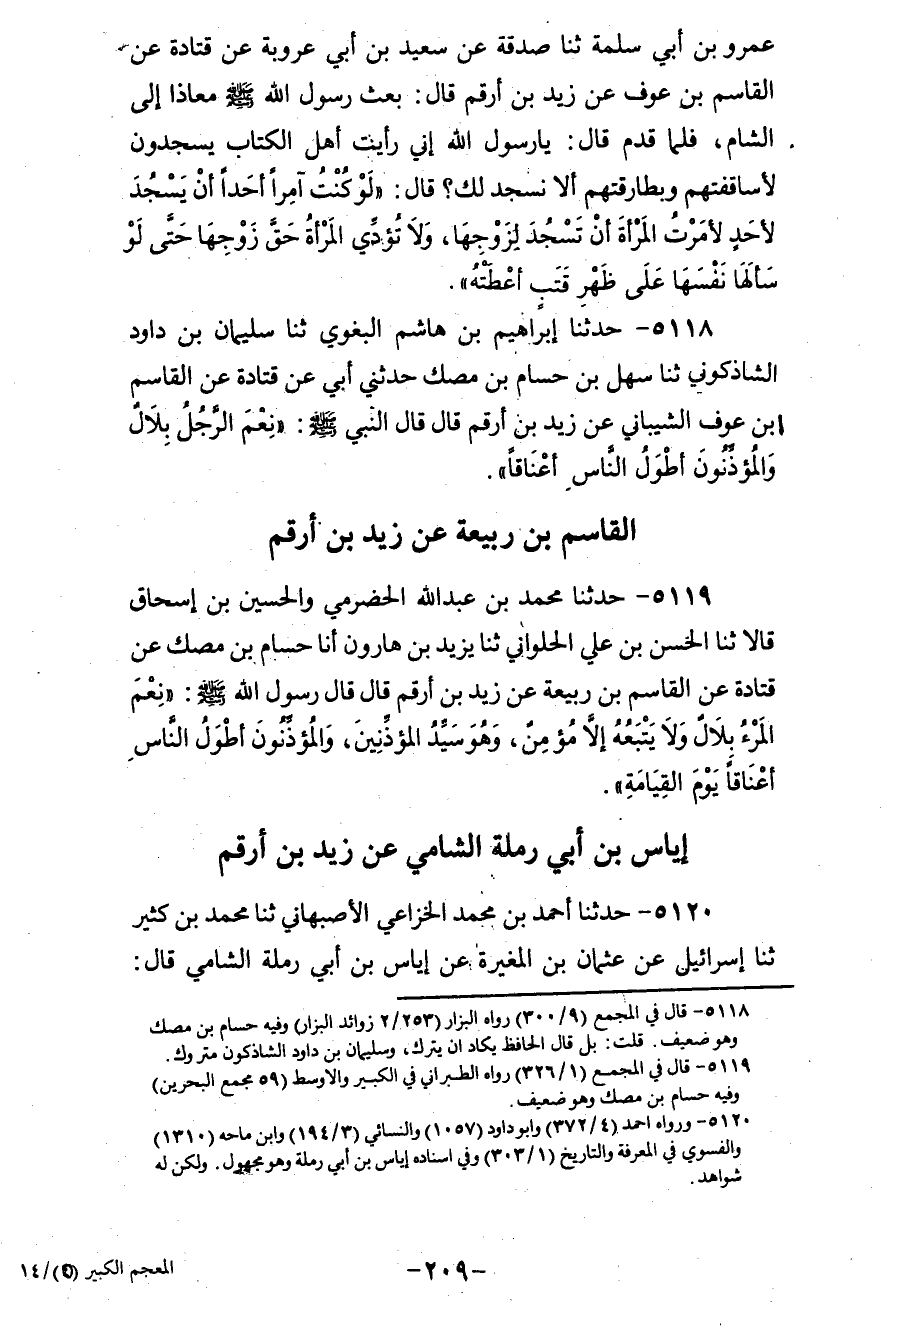 عمرو بن أبي سلمة ثنا صدقة عن سعيد بن أبي عروبة عن قتادة عن
القاسم بن عوف عن زيد بن أرقم قال: بعث رسول الله ﷺ معاذا إلى
الشام، فلما قدم قال: يارسول الله إني رأيت أهل الكتاب يسجدون
لأساقفتهم وبطارقتهم ألا نسجد لك؟ قال: «لَوْ كُنْتُ آمِراً أحَداً أنْ يَسْجُدَ
لأحَدٍ لأمَرْتُ المَرْأةَ أنْ تَسْجُدَ لِزَوْجِهَا، وَلَا تُؤَدِّي المَرْأةُ حَقَّ زَوْجِهَا حَتَّى لَوْ
سَألَهَا نَفْسَهَا عَلَى ظَهْرِ قَتَبٍ أعْطَتْهُ».
٥١١٨- حدثنا إبراهيم بن هاشم البغوي ثنا سليمان بن داود
الشاذكوني ثنا سهل بن حسام بن مصك حدثني أبي عن قتادة عن القاسم
ابن عوف الشيباني عن زيد بن أرقم قال قال النبي ﷺ: «نِعْمَ الرَّجُلُ بِلَالٌ
وَالمُؤذِّنُونَ أطْوَلُ النَّاسِ أعْنَاقاً».
القاسم بن ربيعة عن زيد بن أرقم
٥١١٩- حدثنا محمد بن عبدالله الحضرمي والحسين بن إسحاق
قالا ثنا الحسن بن علي الحلواني ثنا يزيد بن هارون أنا حسام بن مصك عن
قتادة عن القاسم بن ربيعة عن زيد بن أرقم قال قال رسول الله ﷺ: «نِعْمَ
المَرْءُ بِلَالٌ وَلَا يَتْبَعُهُ إلَّا مُؤمِنٌ، وَهُوَ سَيِّدُ المؤذِّنِينَ، وَالمُؤذِّنُونَ أطْوَلُ النَّاسِ
أعْنَاقاً يَوْمَ القِيَامَةِ».
إياس بن أبي رملة الشامي عن زيد بن أرقم
٥١٢٠- حدثنا أحمد بن محمد الخزاعي الأصبهاني ثنا محمد بن كثير
ثنا إسرائيل عن عثمان بن المغيرة عن إياس بن أبي رملة الشامي قال:
٥١١٨- قال في المجمع (٣٠٠/٩) رواه البزار (٢/٢٥٣ زوائد البزار) وفيه حسام بن مصك
وهو ضعيف. قلت: بل قال الحافظ يكاد ان يترك، وسليمان بن داود الشاذكون متروك.
٥١١٩- قال في المجمع (٣٢٦/١) رواه الطبراني في الكبير والاوسط (٥٩ مجمع البحرين)
وفيه حسام بن مصك وهو ضعيف.
٥١٢٠- ورواه احمد (٣٧٢/٤) وابو داود (١٠٥٧) والنسائي (١٩٤/٣) وابن ماجه (١٣١٠)
والفسوي في المعرفة والتاريخ (٣٠٣/١) وفي اسناده إياس بن أبي رملة وهو مجهول. ولكن له
شواهد.
-٢٠٩-
المعجم الكبير (٥)/١٤